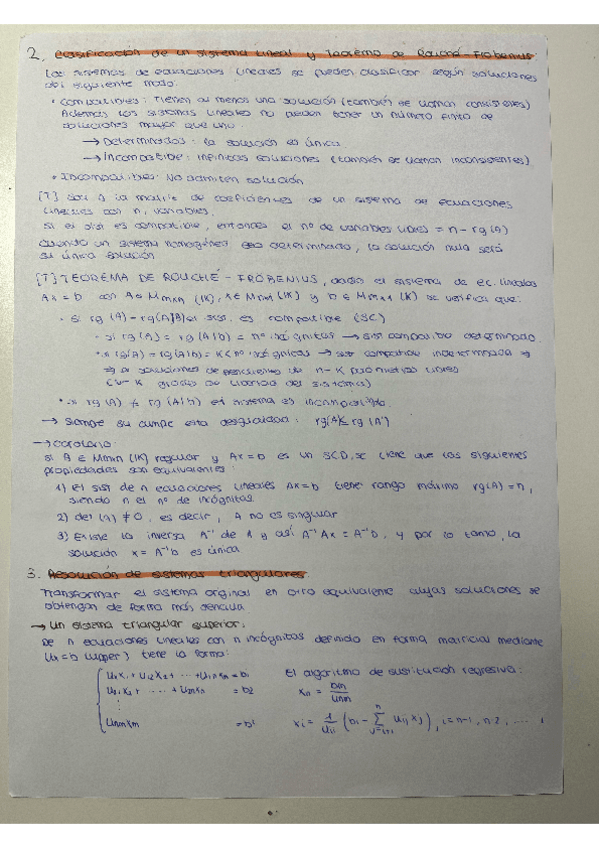 2. Clasificación de un sistema lineal y Teorema de Rouché-Frobenius
Los sistemas de ecuaciones lineales se pueden clasificar según soluciones
del siguiente modo:
• Compatibles: Tienen al menos una solución (también se llaman consistentes)
Además los sistemas lineales no pueden tener un número finito de
soluciones mayor que uno.
→ Determinados: la solución es única
→ Incompatible: infinitas soluciones (también se llaman inconsistentes)
• Incompatibles: No admiten solución
[T] Sea A la matriz de coeficientes de un sistema de ecuaciones
lineales con n, variables.
si el sist es compatible, entonces el nº de variables libres = n - rg (A)
cuando un sistema homogéneo sea determinado, la solución nula será
su única solución
[T] TEOREMA DE ROUCHÉ - FRÖBENIUS, dado el sistema de ec. lineales
Ax = b con A ∈ Mmxn (IK), x ∈ Mnx1 (IK) y b ∈ Mmx1 (IK) se verifica que:
• si rg (A) = rg (A|b) el sist. es compatible (SC)
• si rg (A) = rg (A|b) = nº incógnitas → sist compatible determinado
• si rg (A) = rg (A|b) = K < nº incógnitas → sist compatible indeterminado ⇒
⇒ soluciones de n - K parámetros libres
(n - K grados de libertad del sistema)
• si rg (A) ≠ rg (A|b) el sistema es incompatible
→ siempre se cumple esta desigualdad: rg(A) ≤ rg (A')
→ Corolario:
si A ∈ Mmxn (IK) regular y Ax = b es un SCD, se tiene que las siguientes
propiedades son equivalentes:
1) el sist de n ecuaciones lineales Ax = b tiene rango máximo rg(A) = n,
siendo n el nº de incógnitas
2) det (A) ≠ 0, es decir, A no es singular
3) Existe la inversa A⁻¹ de A y así A⁻¹Ax = A⁻¹b, y por lo tanto, la
solución x = A⁻¹b es única
3. Resolución de sistemas triangulares
Transformar el sistema orginal en otro equivalente cuyas soluciones se
obtengan de forma más sencilla
→ Un sistema triangular superior:
De n ecuaciones lineales con n incógnitas definido en forma matricial mediante
(Ux = b upper) tiene la forma:
x₁ + u₁₂ x₂ + ... + u₁ₙ xₙ = b₁ El algoritmo de sustitución regresiva:
+ ... + = b₂ xₙ = bₙ / uₙₙ
⋮
xᵢ = 1/uᵢᵢ (bᵢ - Σ uᵢⱼ xⱼ), i = n-1, n-2, ....